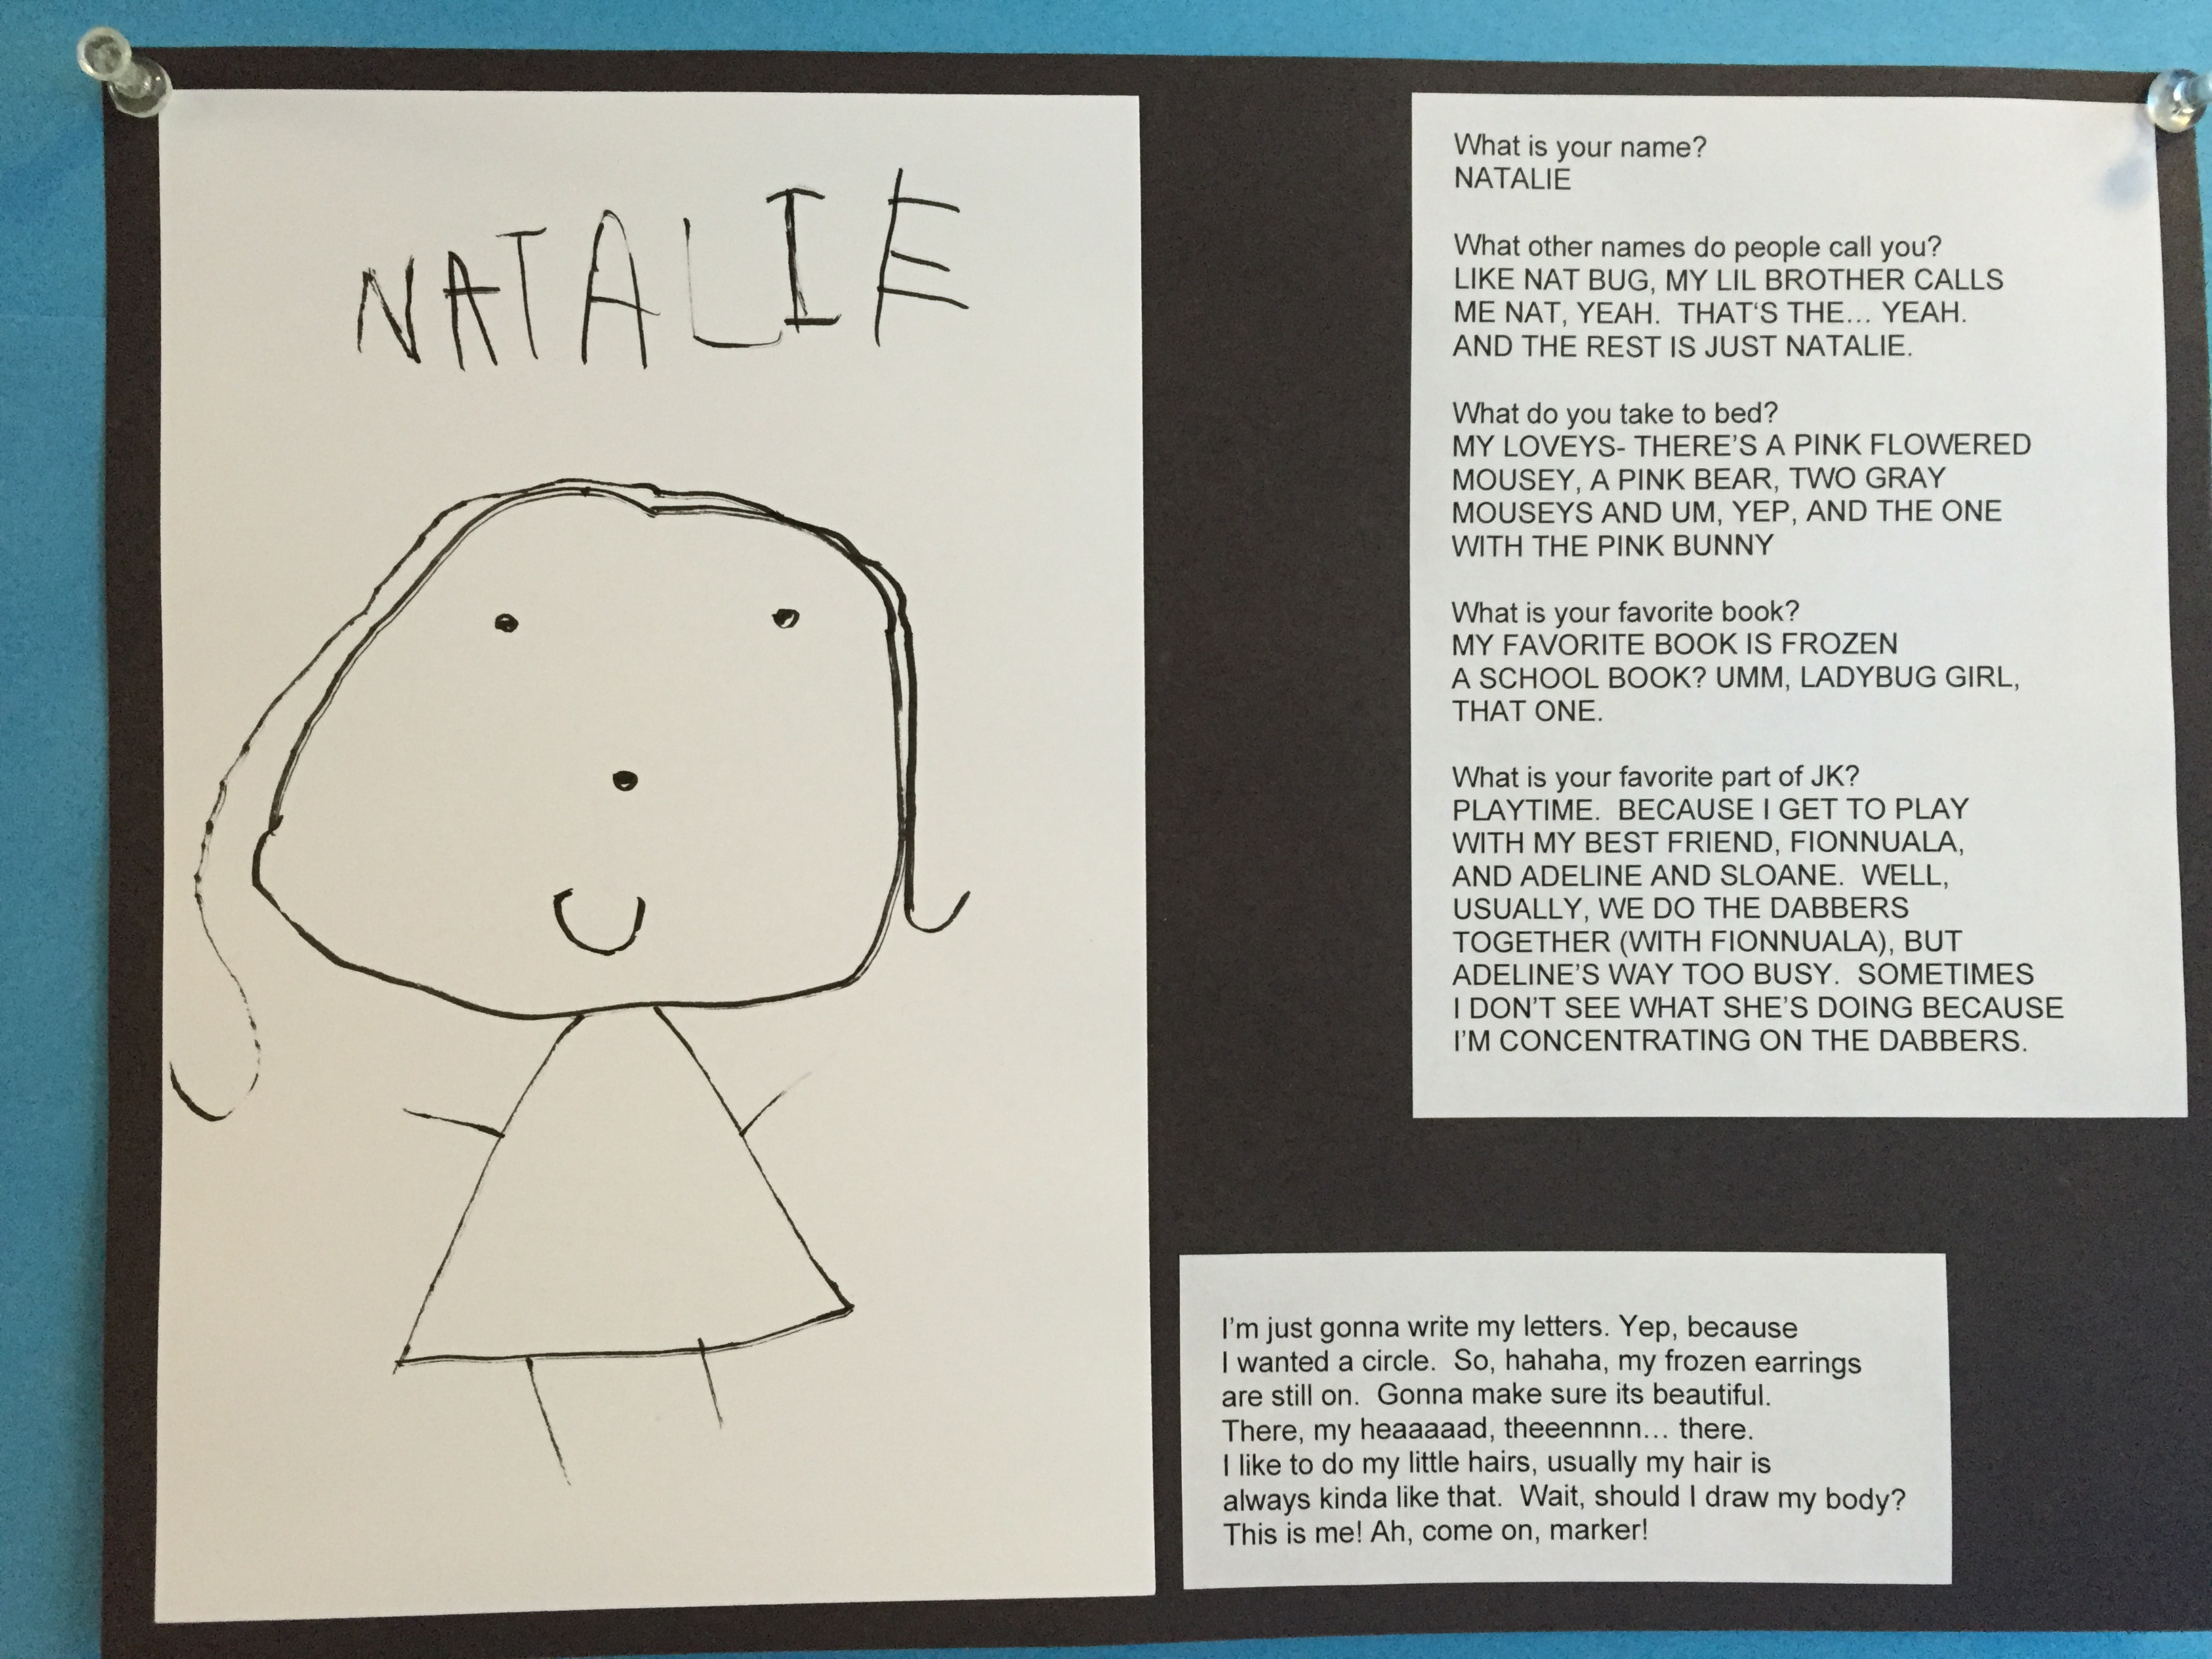 NATALIE
What is your name?
NATALIE
What other names do people call you?
LIKE NAT BUG, MY LIL BROTHER CALLS
ME NAT, YEAH.  THAT‘S THE... YEAH.
AND THE REST IS JUST NATALIE.
What do you take to bed?
MY LOVEYS- THERE’S A PINK FLOWERED
MOUSEY, A PINK BEAR, TWO GRAY
MOUSEYS AND UM, YEP, AND THE ONE
WITH THE PINK BUNNY
What is your favorite book?
MY FAVORITE BOOK IS FROZEN
A SCHOOL BOOK? UMM, LADYBUG GIRL,
THAT ONE.
What is your favorite part of JK?
PLAYTIME.  BECAUSE I GET TO PLAY
WITH MY BEST FRIEND, FIONNUALA,
AND ADELINE AND SLOANE.  WELL,
USUALLY, WE DO THE DABBERS
TOGETHER (WITH FIONNUALA), BUT
ADELINE’S WAY TOO BUSY.  SOMETIMES
I DON’T SEE WHAT SHE’S DOING BECAUSE
I’M CONCENTRATING ON THE DABBERS.
I’m just gonna write my letters. Yep, because
I wanted a circle.  So, hahaha, my frozen earrings
are still on.  Gonna make sure its beautiful.
There, my heaaaaad, theeennnn... there.
I like to do my little hairs, usually my hair is
always kinda like that.  Wait, should I draw my body?
This is me! Ah, come on, marker!